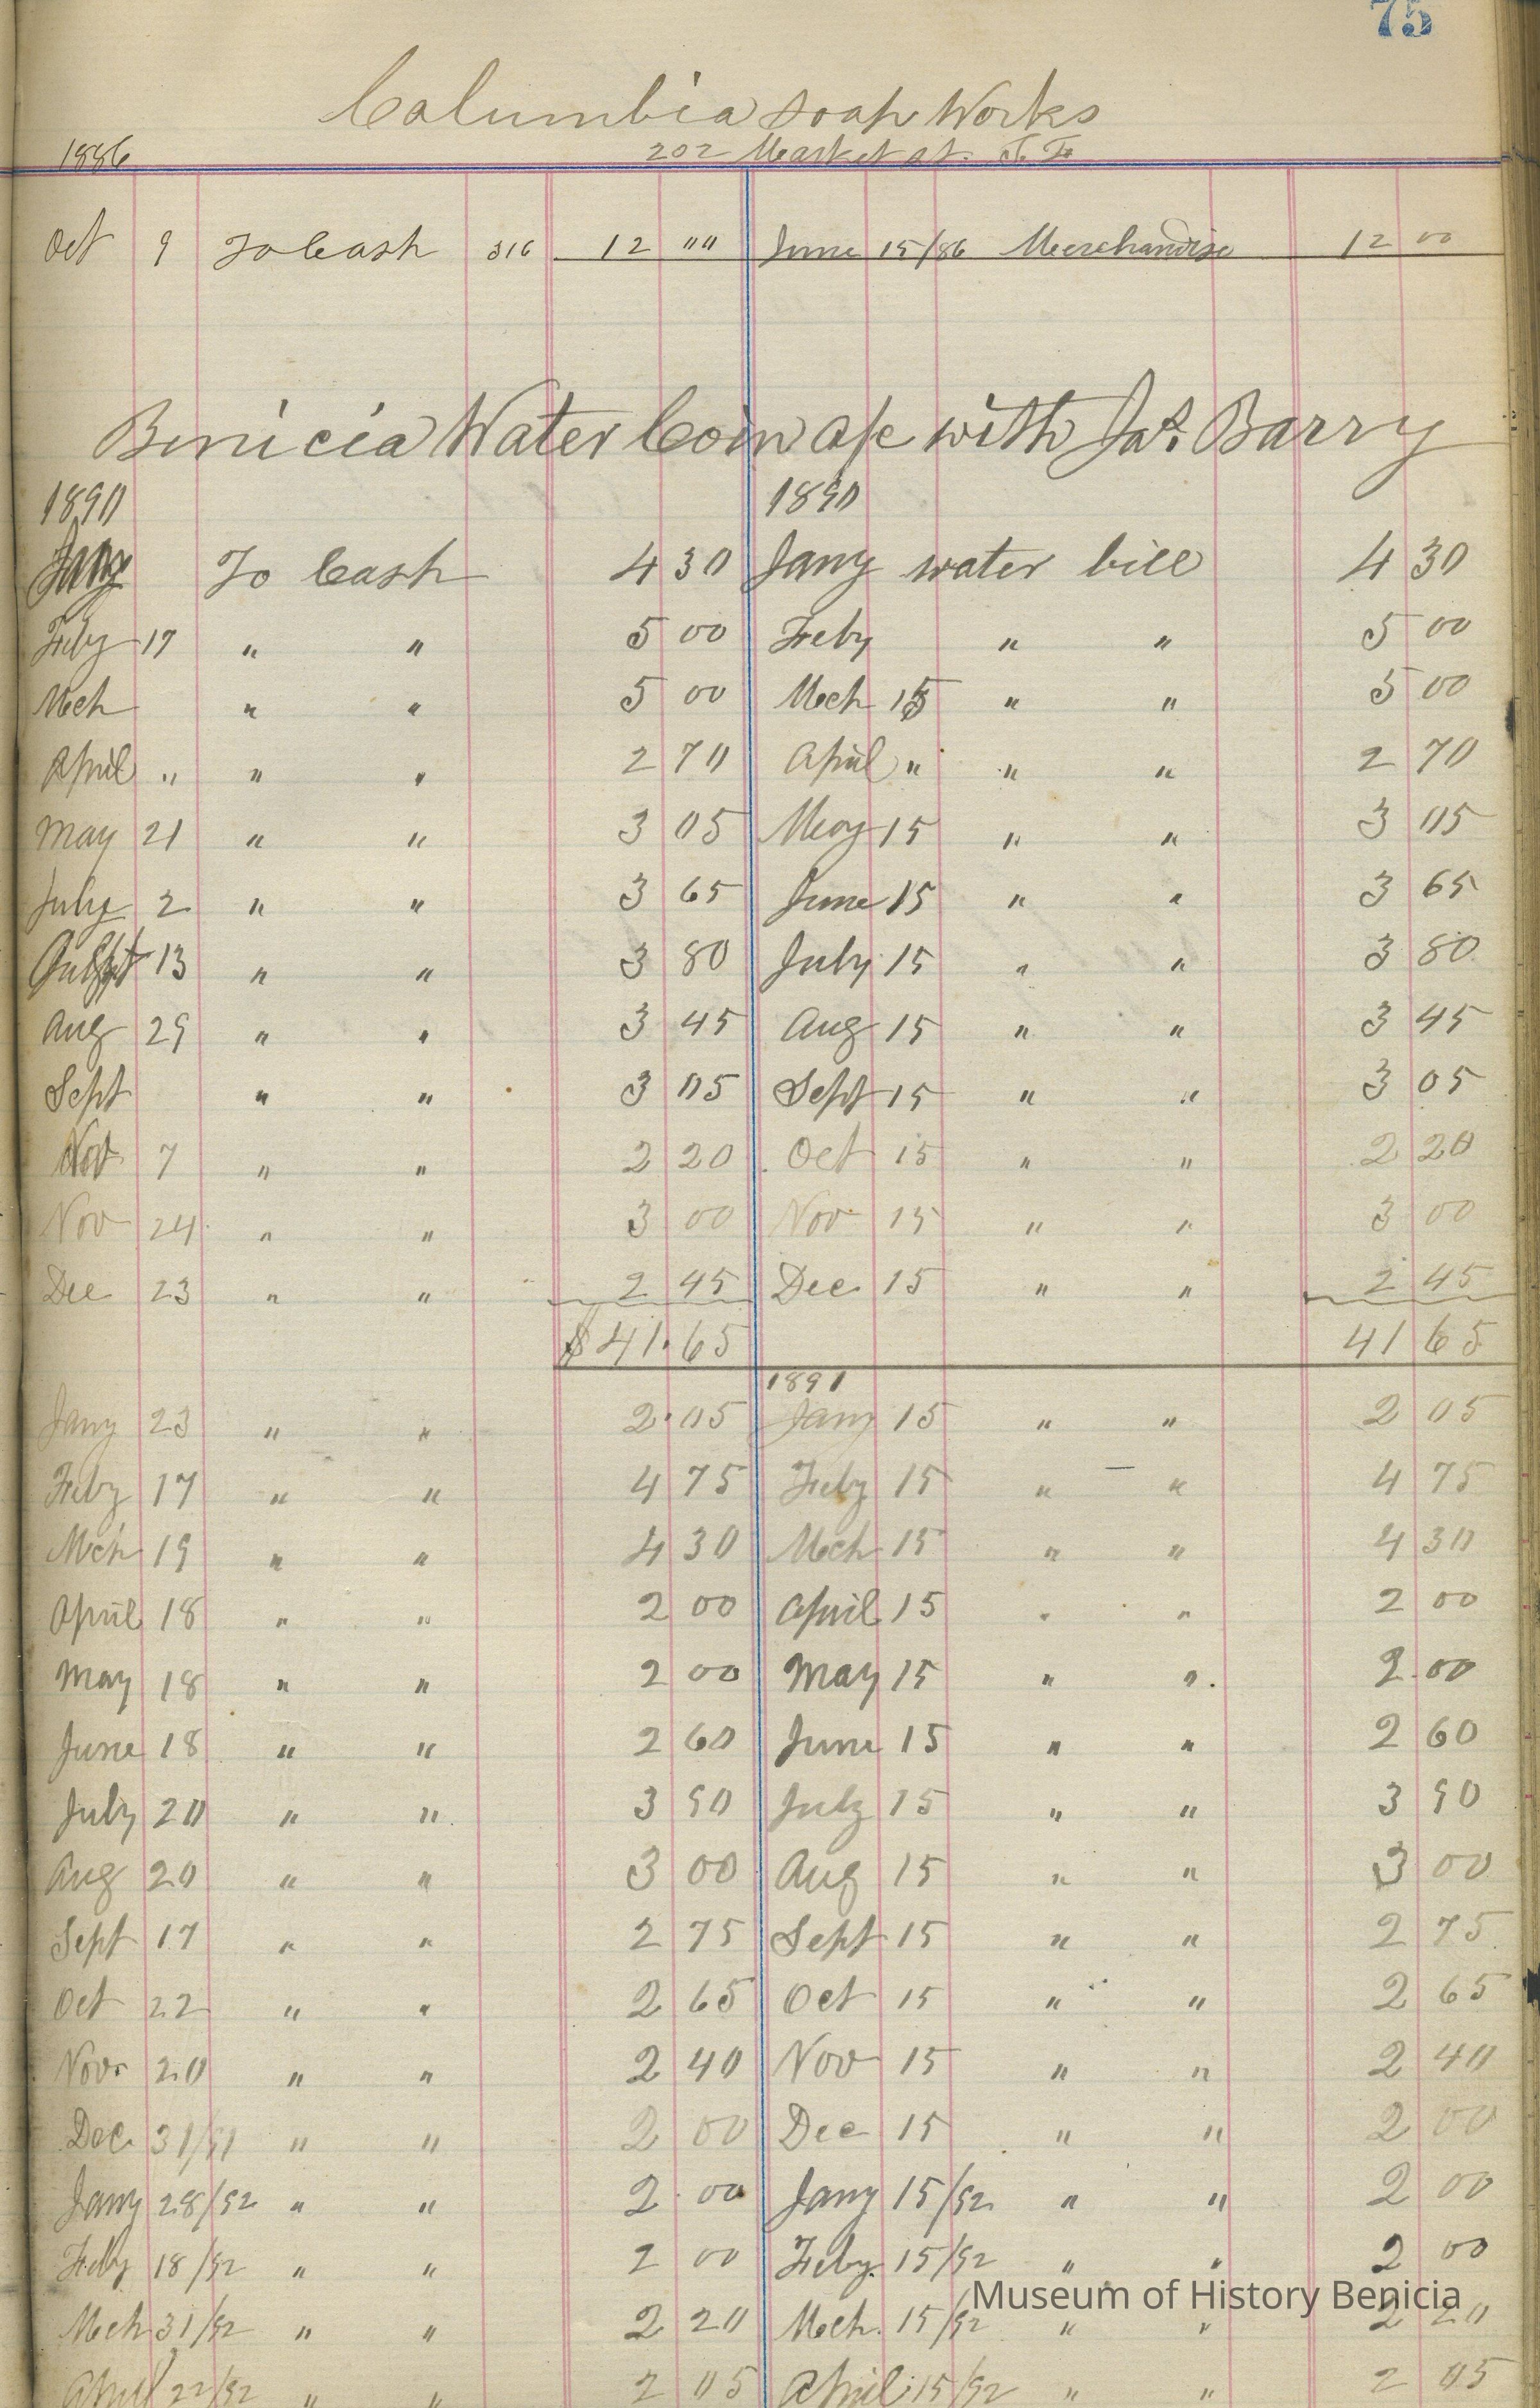 75
Columbia Soap Works
1886 202 Market st. S F
Oct 9 To Cash 316 12 00 June 15/86 Merchandise 12 00
Benicia Water Com a/c with Jas. Barry
1890 1890
To Cash 4 30 Jany water bill 4 30
Feby 17 " " 5 00 Feby " " 5 00
Mch " " 5 00 Mch 15 " " 5 00
April " " " 2 70 April " " " 2 70
May 21 " " 3 05 May 15 " " 3 05
July 2 " " 3 65 June 15 " " 3 65
13 " " 3 80 July 15 " " 3 80
Aug 29 " " 3 45 Aug 15 " " 3 45
Sept " " 3 05 Sept 15 " " 3 05
Nov 7 " " 2 20 Oct 15 " " 2 20
Nov 24 " " 3 00 Nov 15 " " 3 00
Dec 23 " " 2 45 Dec 15 " " 2 45
$ 41.65 41 65
1891
Jany 23 " " 2.05 Jany 15 " " 2 05
Feby 17 " " 4 75 Feby 15 " " 4 75
Mch 19 " " 4 30 Mch 15 " " 4 30
April 18 " " 2 00 April 15 " " 2 00
May 18 " " 2 00 May 15 " " 2.00
June 18 " " 2 60 June 15 " " 2 60
July 20 " " 3 90 July 15 " " 3 90
Aug 20 " " 3 00 Aug 15 " " 3 00
Sept 17 " " 2 75 Sept 15 " " 2 75
Oct 22 " " 2 65 Oct 15 " " 2 65
Nov. 20 " " 2 40 Nov 15 " " 2 40
Dec. 31/91 " " 2 00 Dec 15 " " 2 00
Jany 28/92 " " 2.00 Jany 15/92 " " 2 00
Feby 18/92 " " 2 00 Feby. 15/92 " " 2 00
Museum of History Benicia
Mch 31/92 " " 2 20 Mch. 15/92 " " 2 20
April 22/92 " " 2 05 April 15/92 " " 2 05